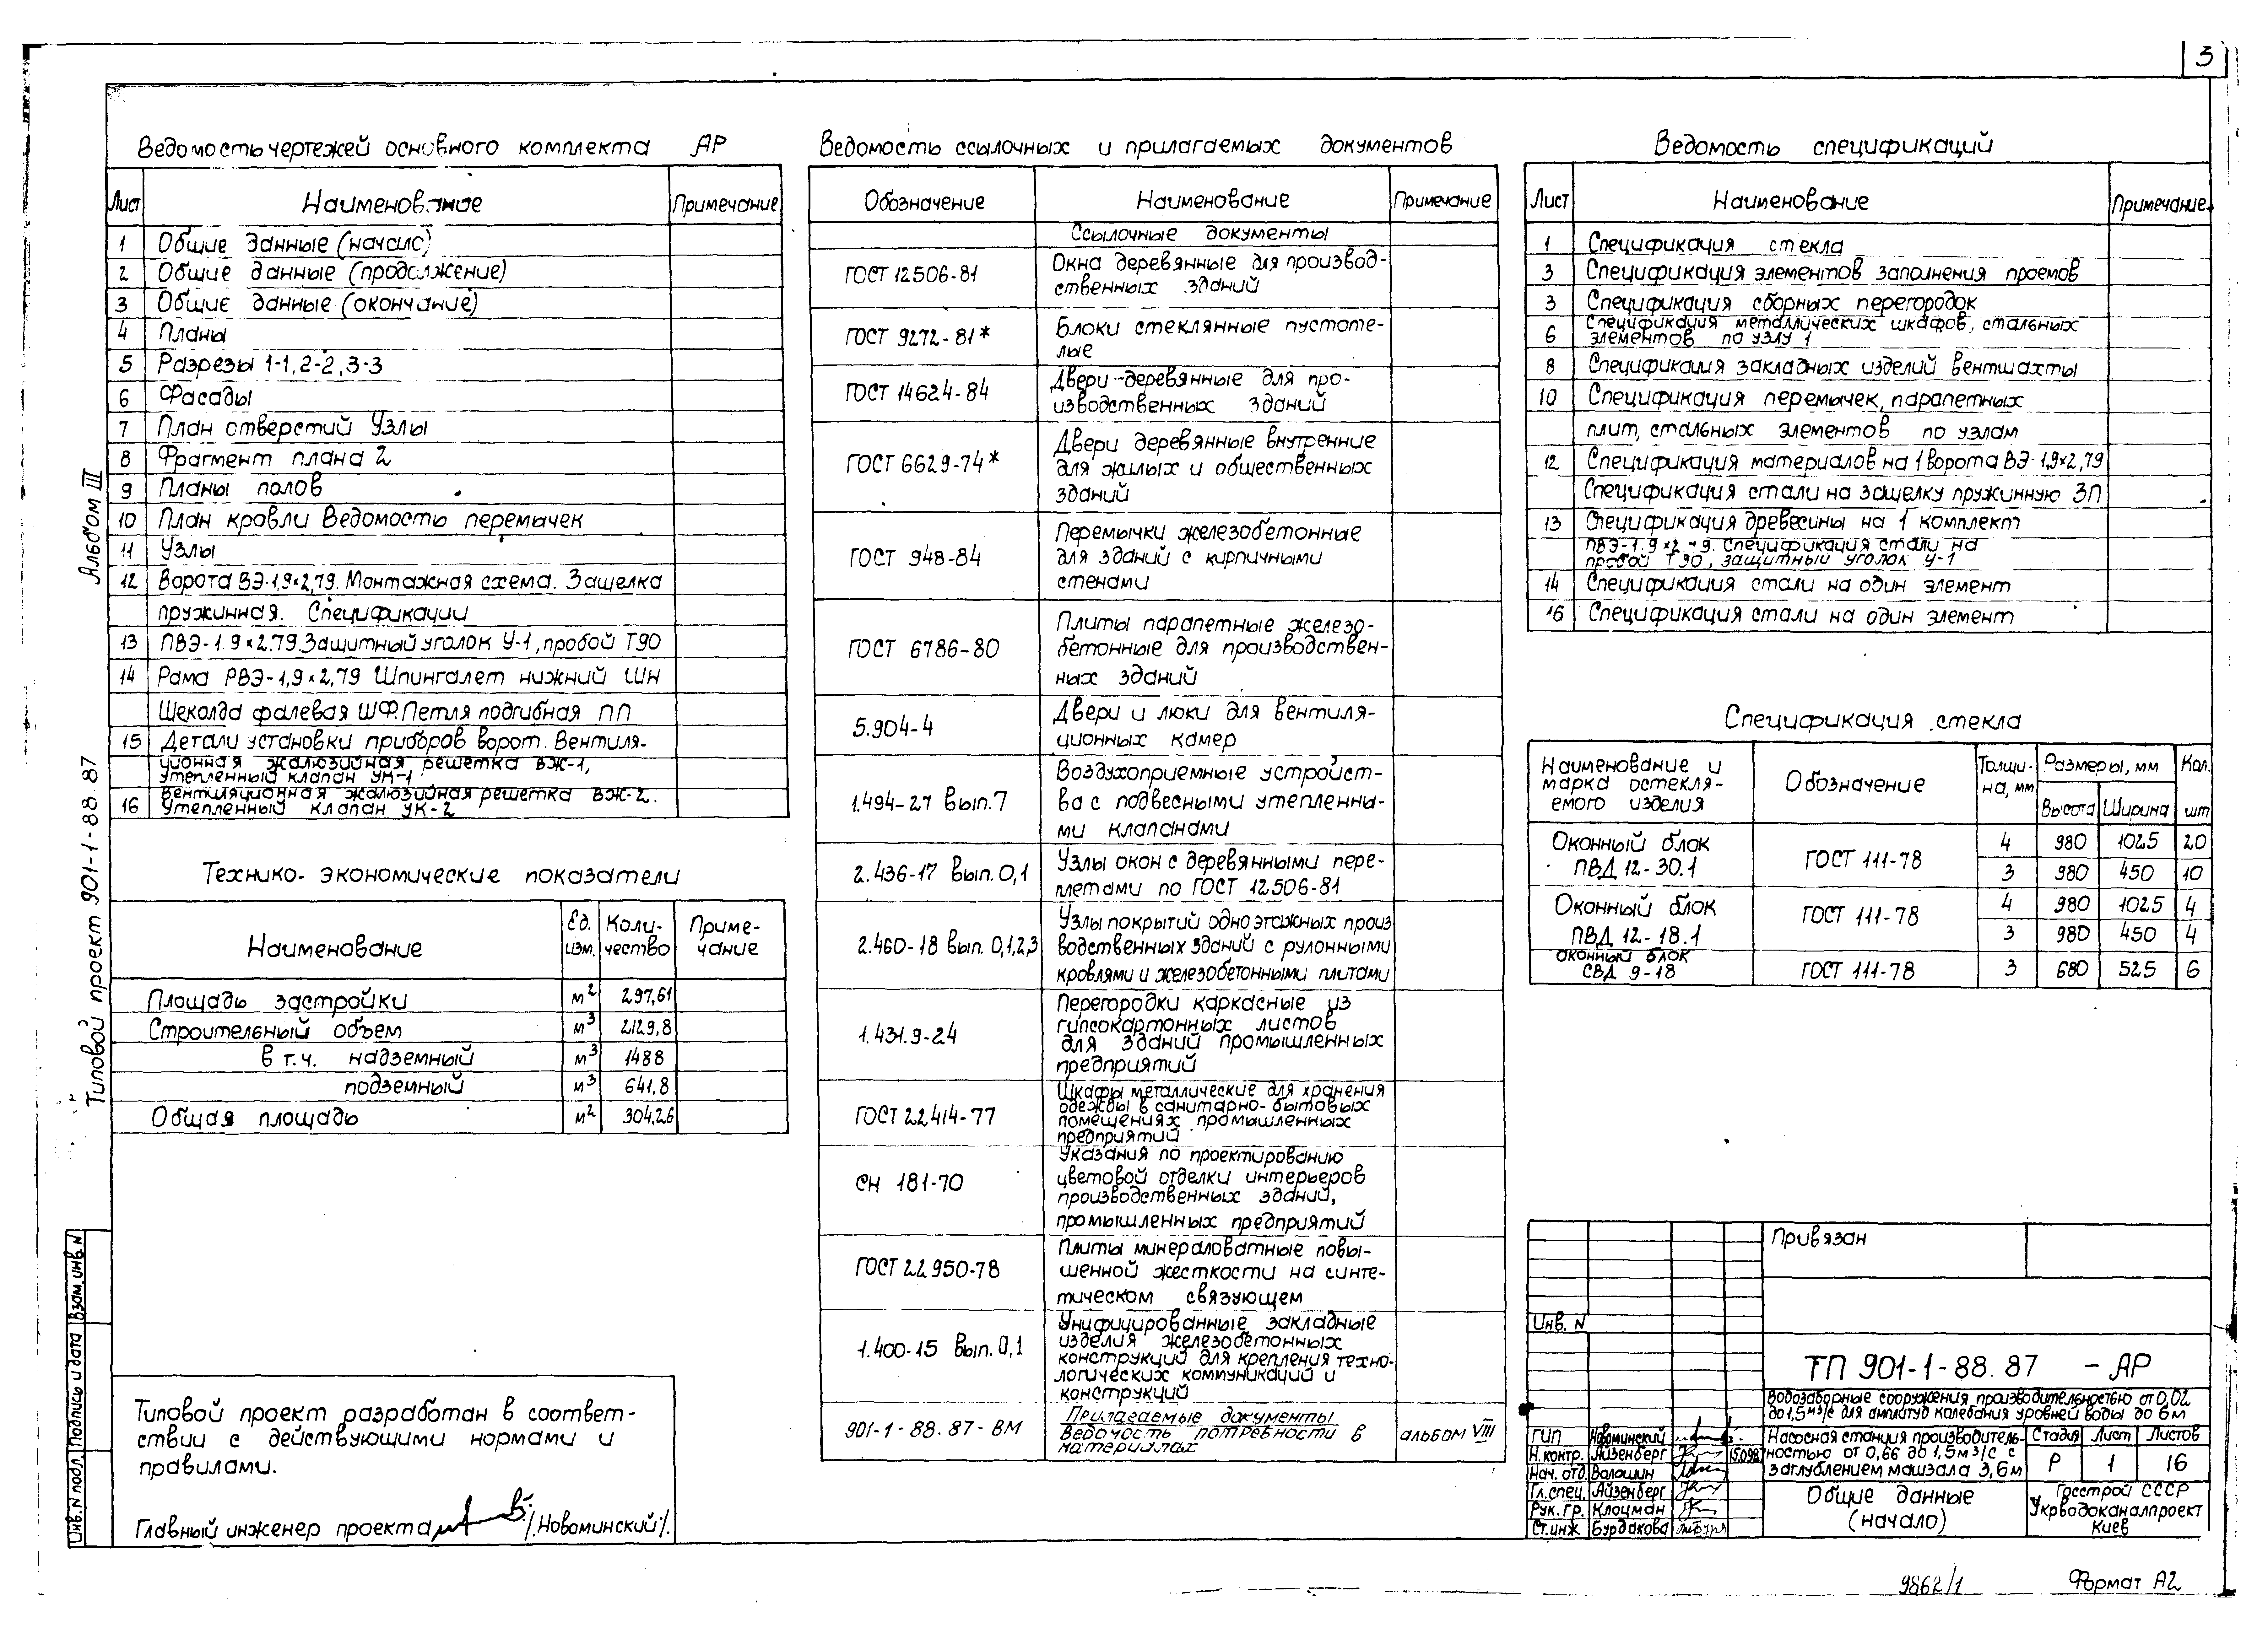 3
Альбом III
Типовой проект 901-1-88.87
Взам.инв.N
Подпись и дата
Инв.N подл.
Ведомость чертежей основного комплекта АР
Лист Наименование Примечание
1 Общие данные (начало)
2 Общие данные (продолжение)
3 Общие данные (окончание)
4 Планы
5 Разрезы 1-1, 2-2, 3-3
6 Фасады
7 План отверстий Узлы
8 Фрагмент плана 2
9 Планы полов
10 План кровли Ведомость перемычек
11 Узлы
12 Ворота ВЭ-1,9×2,79. Монтажная схема. Защелка
пружинная. Спецификации
13 ПВЭ-1.9×2.79.Защитный уголок У-1, пробой Т90
14 Рама РВЭ-1,9×2,79 Шпингалет нижний ШН
Щеколда фалевая ШФ.Петля подгибная ПП
15 Детали установки приборов ворот. Вентиля-
ционная жалюзийная решетка ВЖ-1,
утепленный клапан УК-1
16 Вентиляционная жалюзийная решетка ВЖ-2.
Утепленный клапан УК-2
Технико-экономические показатели
Наименование Ед. изм. Коли-чество Приме-чание
Площадь застройки м2 297,61
Строительный объем м3 2129,8
в т.ч. надземный м3 1488
подземный м3 641,8
Общая площадь м2 304,26
Типовой проект разработан в соответ-
ствии с действующими нормами и
правилами.
Главный инженер проекта /Новоминский/.
Ведомость ссылочных и прилагаемых документов
Обозначение Наименование Примечание
Ссылочные документы
ГОСТ 12506-81 Окна деревянные для производ-
ственных зданий
ГОСТ 9272-81* Блоки стеклянные пустоте-
лые
ГОСТ 14624-84 Двери деревянные для про-
изводственных зданий
ГОСТ 6629-74* Двери деревянные внутренние
для жилых и общественных
зданий
ГОСТ 948-84 Перемычки железобетонные
для зданий с кирпичными
стенами
ГОСТ 6786-80 Плиты парапетные железо-
бетонные для производствен-
ных зданий
5.904-4 Двери и люки для вентиля-
ционных камер
1.494-27 Вып.7 Воздухоприемные устройст-
ва с подвесными утепленны-
ми клапанами
2.436-17 Вып.0,1 Узлы окон с деревянными пере-
плетами по ГОСТ 12506-81
2.460-18 Вып. 0,1,2,3 Узлы покрытий одноэтажных произ
водственных зданий с рулонными
кровлями и железобетонными плитами
1.431.9-24 Перегородки каркасные из
гипсокартонных листов
для зданий промышленных
предприятий
ГОСТ 22414-77 Шкафы металлические для хранения
одежды в санитарно-бытовых
помещениях промышленных
предприятий
СН 181-70 Указания по проектированию
цветовой отделки интерьеров
производственных зданий,
промышленных предприятий
ГОСТ 22950-78 Плиты минераловатные повы-
шенной жесткости на синте-
тическом связующем
1.400-15 Вып.0,1 Унифицированные закладные
изделия железобетонных
конструкций для крепления техно-
логических коммуникаций и
конструкций
Прилагаемые документы
901-1-88.87-ВМ Ведомость потребности в альбом VIII
материалах
Ведомость спецификаций
Лист Наименование Примечание
1 Спецификация стекла
3 Спецификация элементов заполнения проемов
3 Спецификация сборных перегородок
6 Спецификация металлических шкафов, стальных
элементов по узлу 1
8 Спецификация закладных изделий вентшахты
10 Спецификация перемычек, парапетных
плит, стальных элементов по узлам
12 Спецификация материалов на 1 ворота ВЭ-1,9×2,79
Спецификация стали на защелку пружинную ЗП
13 Спецификация древесины на 1 комплект
ПВЭ-1.9×2.79. Спецификация стали на
пробой Т90, защитный уголок У-1
14 Спецификация стали на один элемент
16 Спецификация стали на один элемент
Спецификация стекла
Наименование и марка остекля-емого изделия Обозначение Толщи-на, мм Размеры, мм Кол. шт
Высота Ширина
Оконный блок ПВД 12-30.1 ГОСТ 111-78 4 980 1025 20
3 980 450 10
Оконный блок ПВД 12-18.1 ГОСТ 111-78 4 980 1025 4
3 980 450 4
Оконный блок СВД 9-18 ГОСТ 111-78 3 680 525 6
Привязан
Инв. N
ТП 901-1-88.87 -АР
Водозаборные сооружения производительностью от 0,02
до 1,5 м3/с для амплитуд колебания уровней воды до 6 м
ГИП Новоминский
Н.контр. Айзенберг
Нач. отд. Волошин
Гл.спец. Айзенберг
Рук. гр. Клоцман
Ст.инж Бурдакова
Насосная станция производитель-
ностью от 0,66 до 1,5 м3/с с
заглублением машзала 3,6 м
Стадия Лист Листов
Р 1 16
Общие данные
(начало)
Госстрой СССР
Укрводоканалпроект
Киев
9862/1
Формат А2